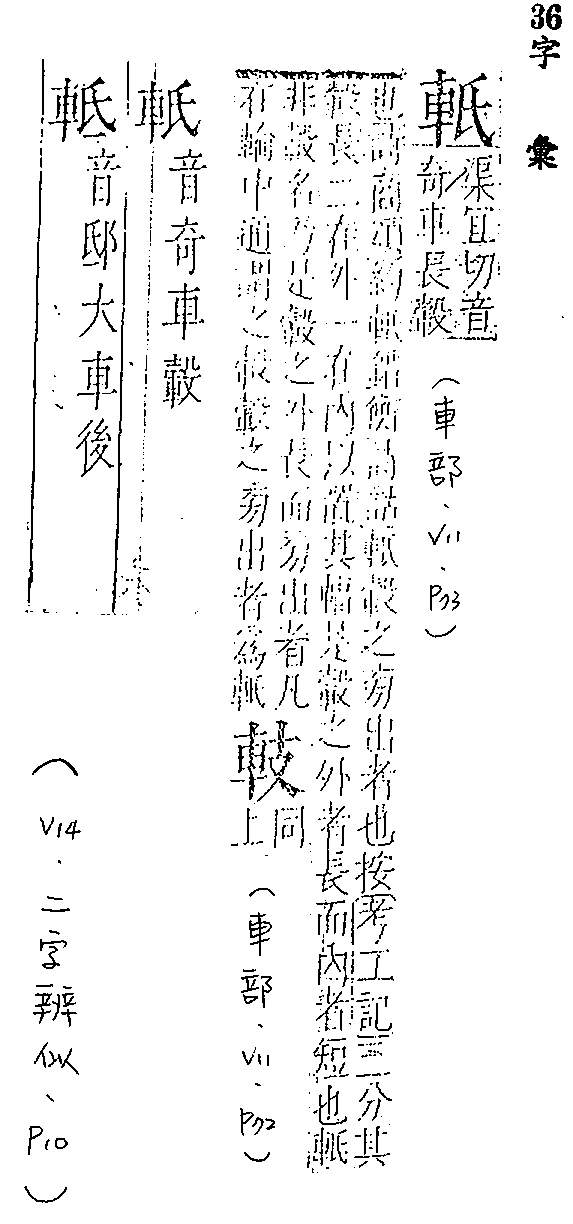 36字 彙
軝
渠宜切音
奇車長轂
(車部、V11、P73)
也詩商頌約軝錯衡詩詁軝轂之旁出者也按考工記三分其
轂長二在外一在內以置其輻是轂之外者長而內者短也軝
非轂名乃是轂之外長而旁出者凡
在輪中通謂之轂轂之旁出者爲軝
䡋
同
上
(車部、V11、P72)
軝 音奇車轂
軧 音邸大車後
(V14、二字辨似、P10)